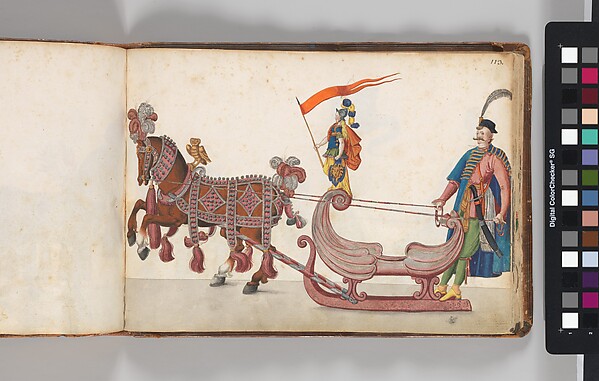 113.
Digital ColorChecker SG